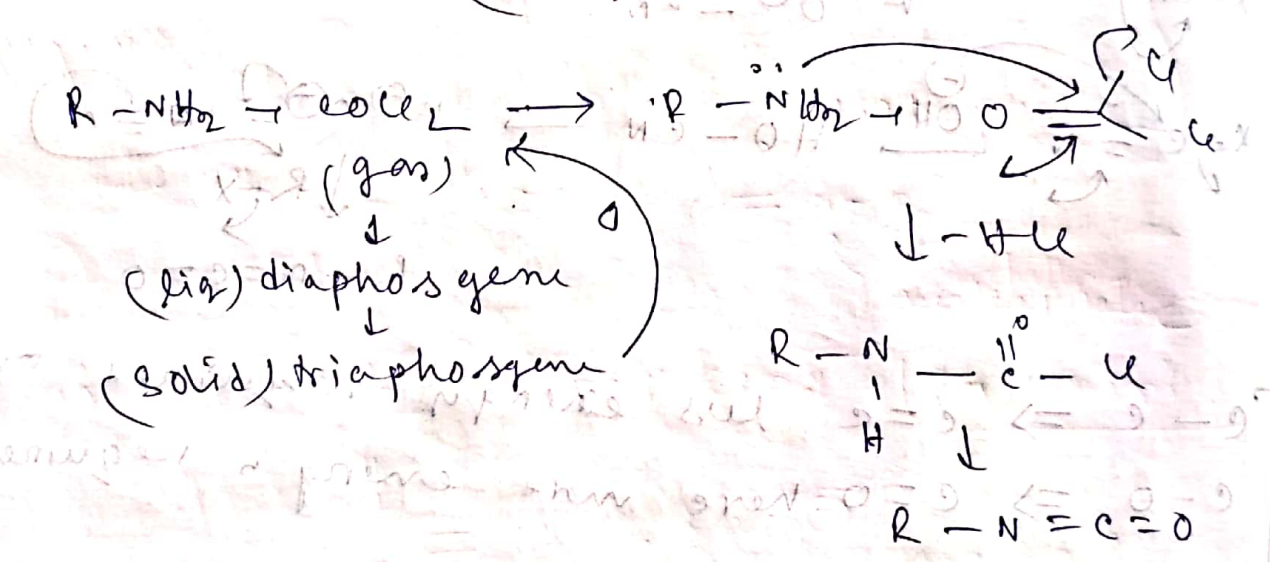 R - NH2 + COCl2 → R - N̈H2 + O = C Cl Cl
(gas)
↓
(liq) diaphosgene
↓
(solid) triaphosgene
Δ
↓ - HCl
R - N - C - Cl
O
H
↓
R - N = C = O